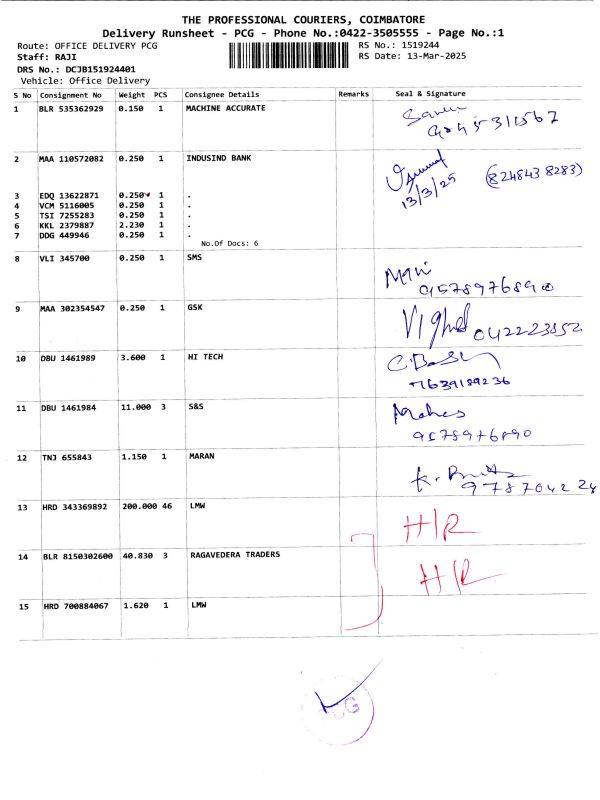 THE PROFESSIONAL COURIERS, COIMBATORE
Delivery Runsheet - PCG - Phone No.:0422-3505555 - Page No.:1
Route: OFFICE DELIVERY PCG
RS No.: 1519244
Staff: RAJI
RS Date: 13-Mar-2025
DRS No.: DCJB151924401
Vehicle: Office Delivery
S No Consignment No Weight PCS Consignee Details Remarks Seal & Signature
1 BLR 535362929 0.150 1 MACHINE ACCURATE
2 MAA 110572082 0.250 1 INDUSIND BANK
13/3/25 (8248438283)
3 EDQ 13622871 0.250 1 .
4 VCM 5116005 0.250 1 .
5 TSI 7255283 0.250 1 .
6 KKL 2379887 2.230 1 .
7 DDG 449946 0.250 1 .
No.Of Docs: 6
8 VLI 345700 0.250 1 SMS
Mani
9578976890
9 MAA 302354547 0.250 1 GSK
10 DBU 1461989 3.600 1 HI TECH
7639189236
11 DBU 1461984 11.000 3 S&S
Mahes
9578976890
12 TNJ 655843 1.150 1 MARAN
13 HRD 343369892 200.000 46 LMW
H/R
14 BLR 8150302600 40.830 3 RAGAVEDERA TRADERS
H/R
15 HRD 700884067 1.620 1 LMW